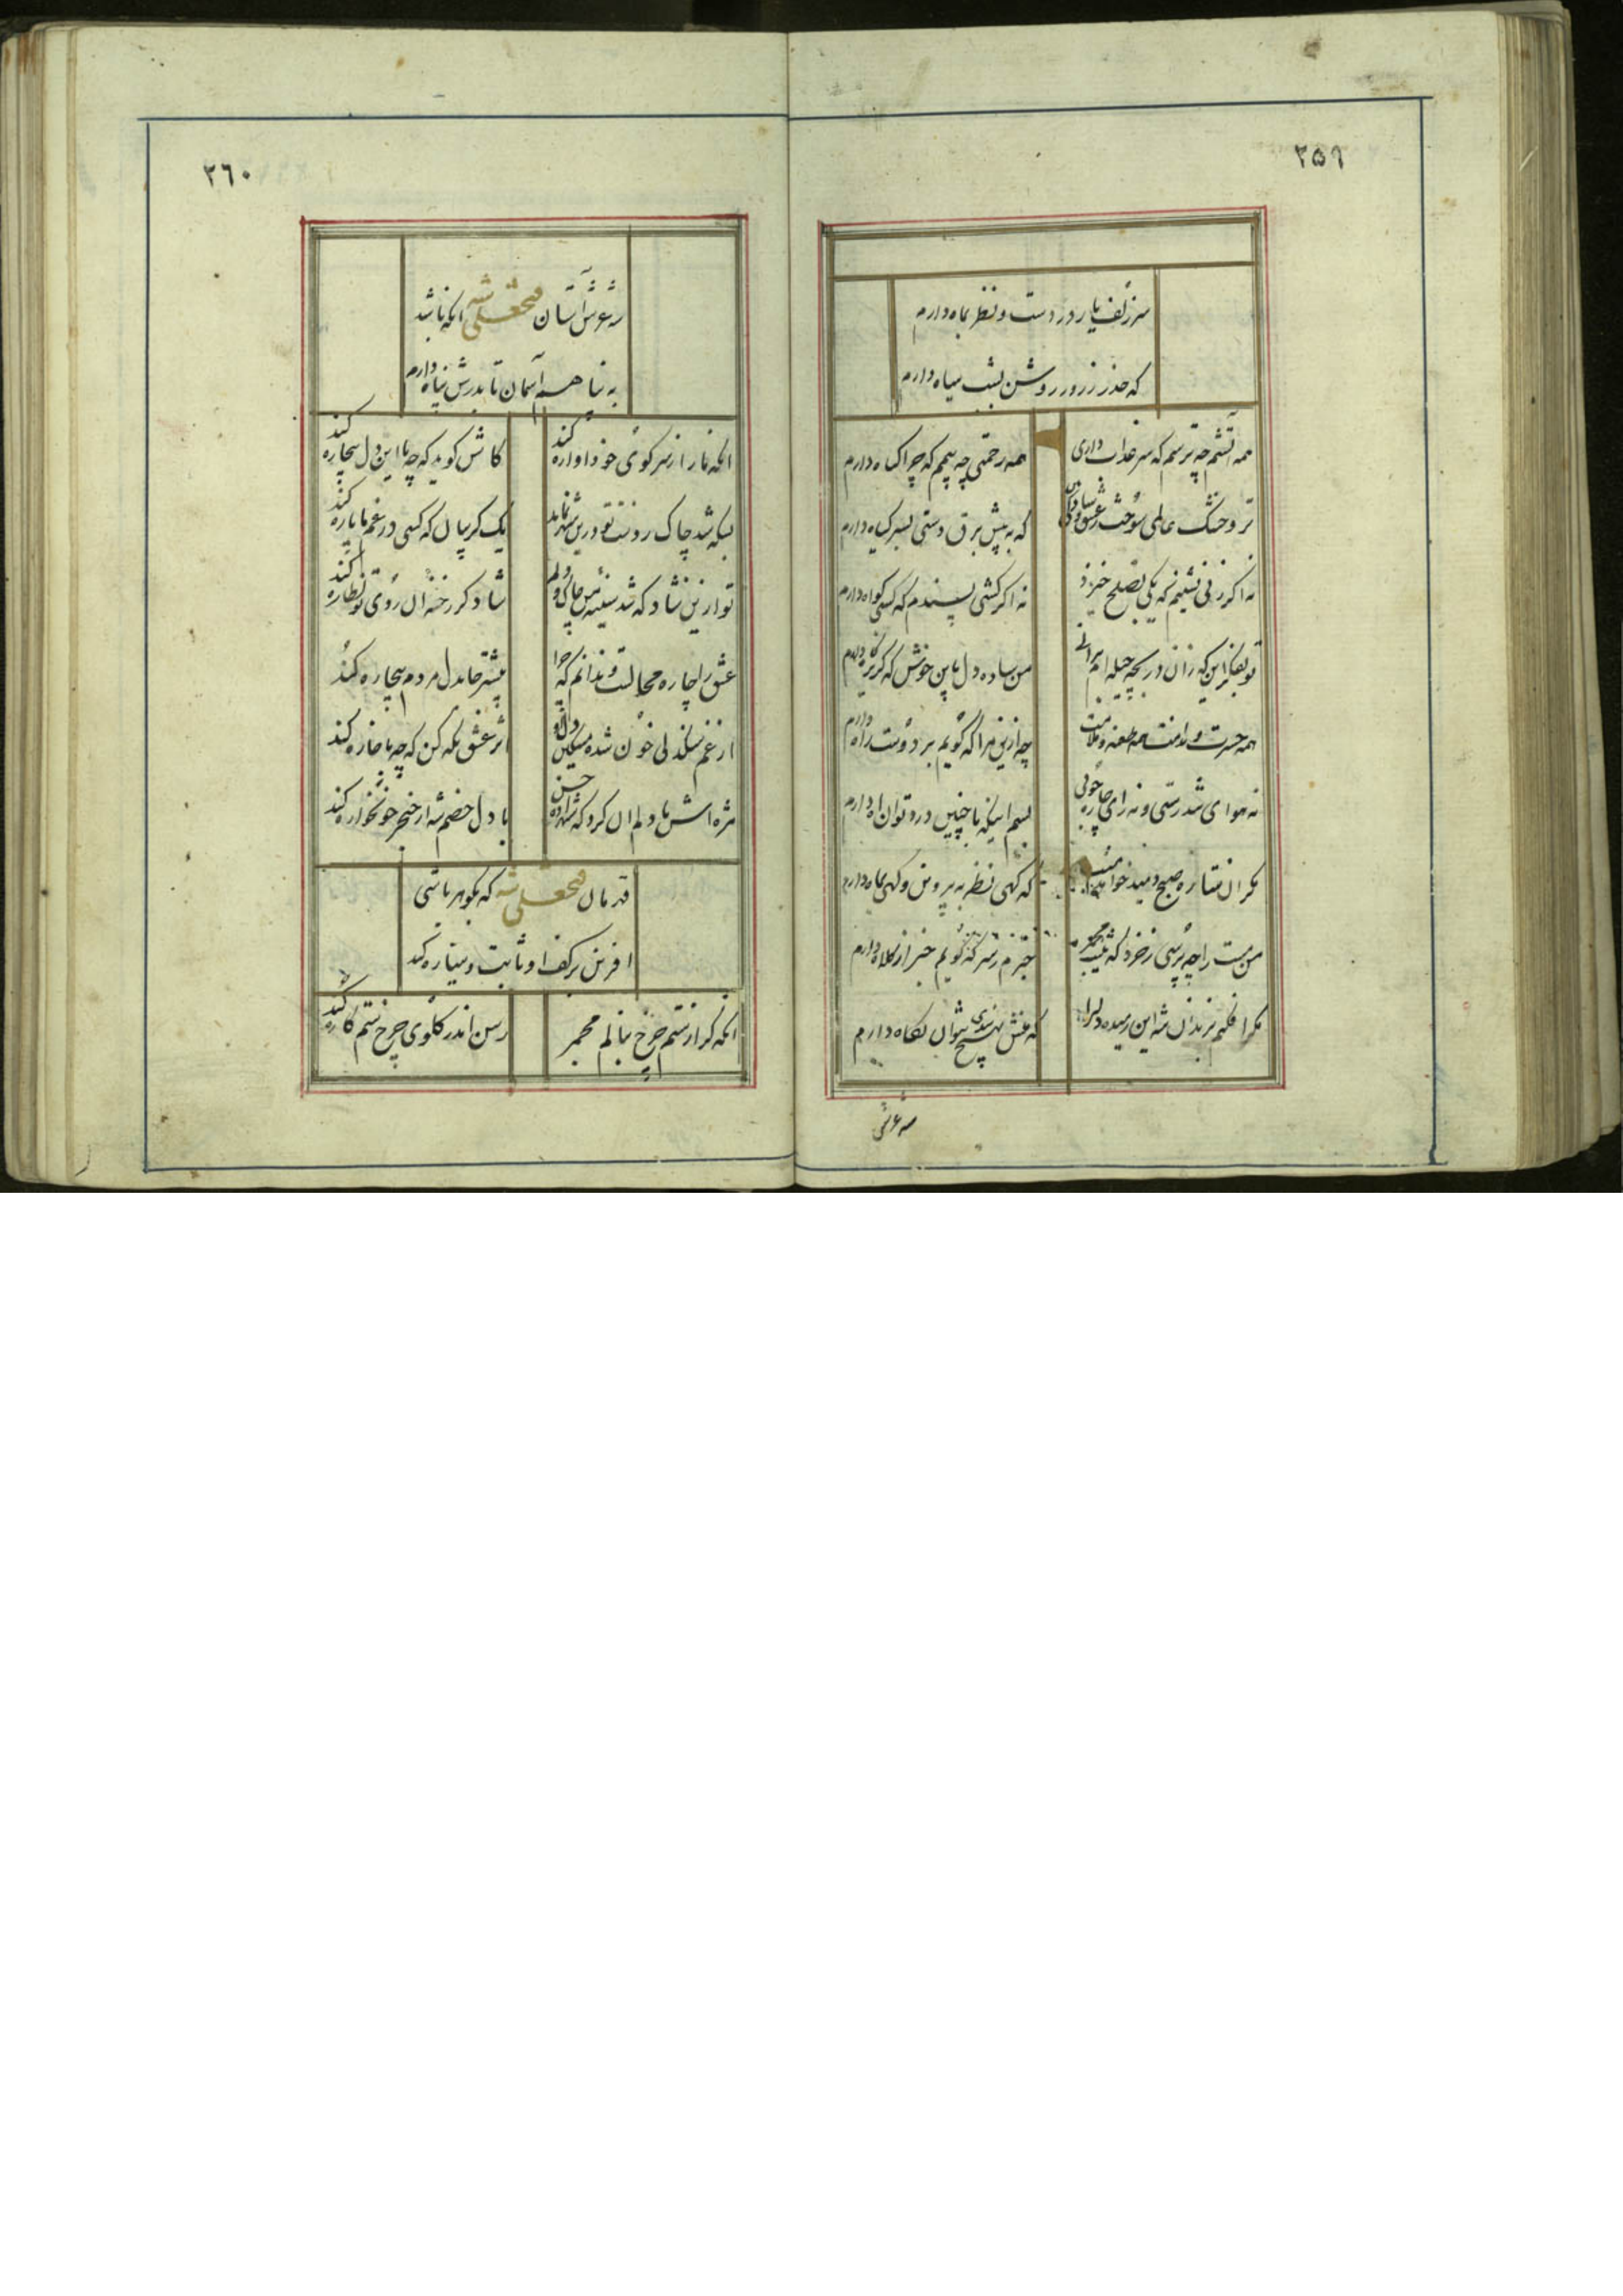 ۲۵۹
سر زلف یار در دست و نظر بماه دارم
که حذر ز روز روشن بشب سیاه دارم
همه آتشم چه ترسم که سر عذاب داری
همه رحمتی چه بیمم که چرا گناه دارم
تر و خشک عالمی سوخت ز عشق و
که به پیش برق دستی بسر گیاه دارم
نه اگر زنی نشینم که یکی بصلح خیزد
نه اگر کشی پسندم که کسی گواه دارم
تو بفکر این که زان در بچه حیله ام برانی
من ساده دل باین خوش که گریزگاه دارم
همه حسرت و ندامت همه طعنه و ملامت
چه ازین مرا که گویم بر دوست راه دارم
نه هوای تندرستی و نه رای چاره جوئی
بسم اینکه با چنین درد توان آه دارم
مگر آن ستاره صبح دمید خواهد
که گهی نظر به پروین و گهی بماه دارم
من مست را چه پرسی ز خرد که
خبرم ز سر که گویم خبر از کلاه دارم
مگر افکنم بزندان شه این رمیده دل را
که منش بهیچ پندی نتوان نگاه دارم
شه عرش
۲۶۰
شه عرش آستان فتحعلی شه آنکه باشد
به پناهش آسمان تا بدرش پناه دارم
آنکه ما را ز سر کوی خود آواره کند
کاش گوید که چه با این دل بیچاره کند
بسکه شد چاک ز دست تو درین شهر نماند
یک گریبان که کسی در غم ما پاره کند
تو ازین شاد که شد سینه من چاک و دلم
شاد کز رخنه آن روی تو نظاره کند
عشق را چاره محالست و ندانم که چرا
بیشتر جا بدل مردم بیچاره کند
از غم سنگدلی خون شده مسکین دل و
اثر عشق نگه کن که چه با خاره کند
مژه اش با دلم آن کرد که شهزاده حسن
با دل خصم شه از خنجر خونخواره کند
قدرمان فتحعلی شه که بگوهر باشی
آفرین بر کف او ثابت و سیاره کند
آنکه گر از ستم چرخ بنالم مجمر
رسن اندر گلوی چرخ ستمکاره کند